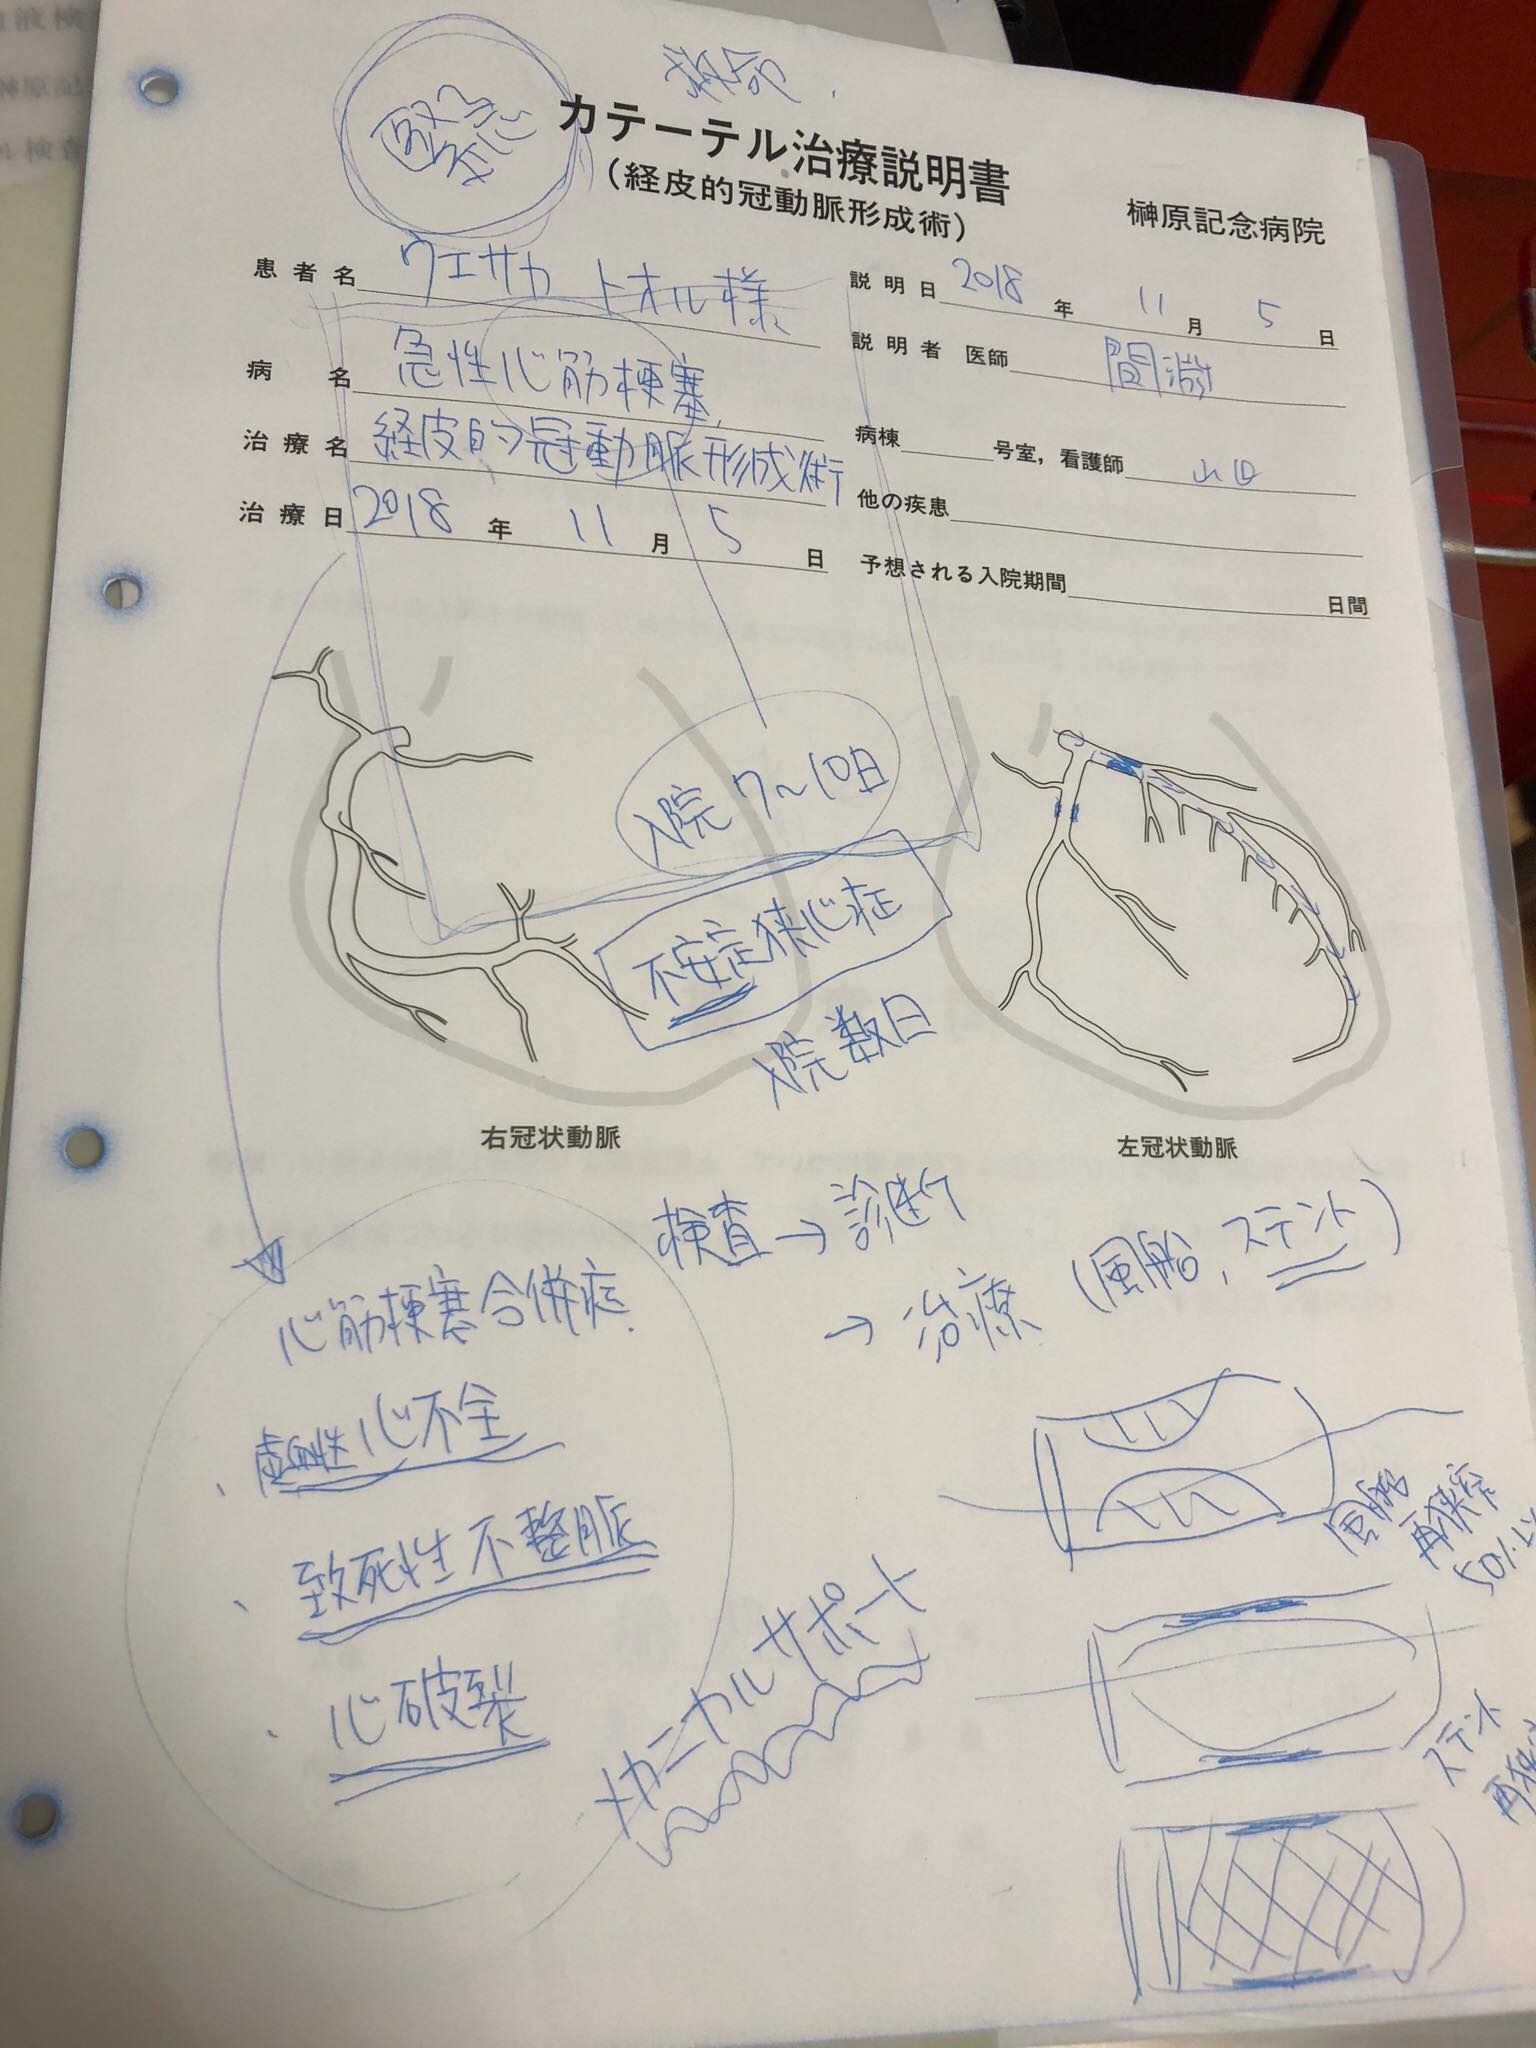 緊急
救命
カテーテル治療説明書
（経皮的冠動脈形成術）
榊原記念病院
患者名 ウエサカ トオル様
説明日 2018 年 11 月 5 日
説明者 医師 間淵
病名 急性心筋梗塞
病棟 号室，看護師 山田
治療名 経皮的冠動脈形成術
他の疾患
治療日 2018 年 11 月 5 日
予想される入院期間 日間
入院 7~10日
不安定狭心症
入院数日
右冠状動脈
左冠状動脈
検査→診断
→治療（風船，ステント）
心筋梗塞合併症
・虚血性心不全
・致死性不整脈
・心破裂
メカニカルサポート
風船
再狭窄
50%以
ステント
再狭
液検
榊原記
ル検査